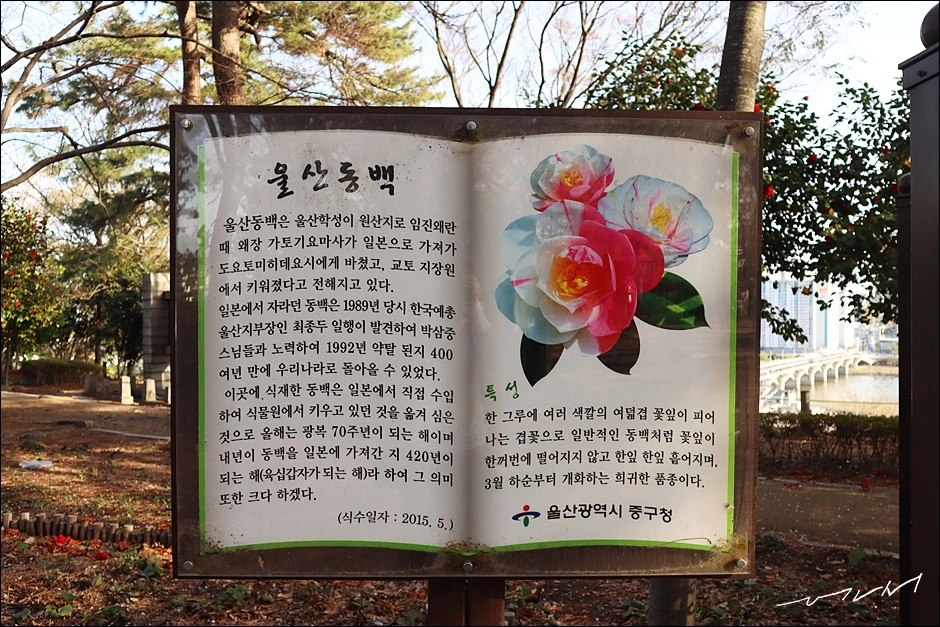 울산동백
울산동백은 울산학성이 원산지로 임진왜란
때 왜장 가토기요마사가 일본으로 가져가
도요토미히데요시에게 바쳤고, 교토 지장원
에서 키워졌다고 전해지고 있다.
일본에서 자라던 동백은 1989년 당시 한국예총
울산지부장인 최종두 일행이 발견하여 박삼중
스님들과 노력하여 1992년 약탈 된지 400
여년 만에 우리나라로 돌아올 수 있었다.
이곳에 식재한 동백은 일본에서 직접 수입
하여 식물원에서 키우고 있던 것을 옮겨 심은
것으로 올해는 광복 70주년이 되는 해이며
내년이 동백을 일본에 가져간 지 420년이
되는 해(육십갑자가 되는 해)라 하여 그 의미
또한 크다 하겠다.
(식수일자 : 2015. 5.)
특성
한 그루에 여러 색깔의 여덟겹 꽃잎이 피어
나는 겹꽃으로 일반적인 동백처럼 꽃잎이
한꺼번에 떨어지지 않고 한잎 한잎 흩어지며,
3월 하순부터 개화하는 희귀한 품종이다.
울산광역시 중구청